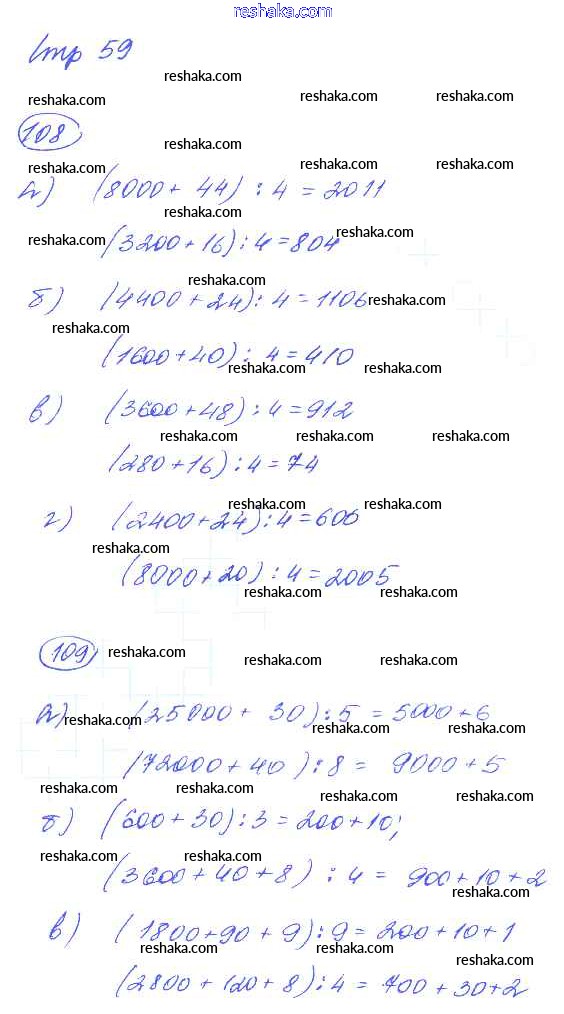 reshaka.com
Стр 59
reshaka.com
reshaka.com reshaka.com reshaka.com
108
reshaka.com
reshaka.com reshaka.com reshaka.com
а) (8000 + 44) : 4 = 2011
reshaka.com
reshaka.com (3200 + 16) : 4 = 804 reshaka.com
reshaka.com
б) (4400 + 24) : 4 = 1106 reshaka.com
reshaka.com
(1600 + 40) : 4 = 410
reshaka.com reshaka.com
в) (3600 + 48) : 4 = 912
reshaka.com reshaka.com reshaka.com
(280 + 16) : 4 = 74
reshaka.com reshaka.com
г) (2400 + 24) : 4 = 606
reshaka.com
(8000 + 20) : 4 = 2005
reshaka.com reshaka.com
109 reshaka.com
reshaka.com reshaka.com
а) reshaka.com (25000 + 30) : 5 = 5000 + 6
reshaka.com reshaka.com
(72000 + 40) : 8 = 9000 + 5
reshaka.com reshaka.com
reshaka.com reshaka.com
б) (600 + 30) : 3 = 200 + 10;
reshaka.com reshaka.com
(3600 + 40 + 8) : 4 = 900 + 10 + 2
reshaka.com
в) (1800 + 90 + 9) : 9 = 200 + 10 + 1
reshaka.com reshaka.com
reshaka.com
(2800 + 120 + 8) : 4 = 700 + 30 + 2